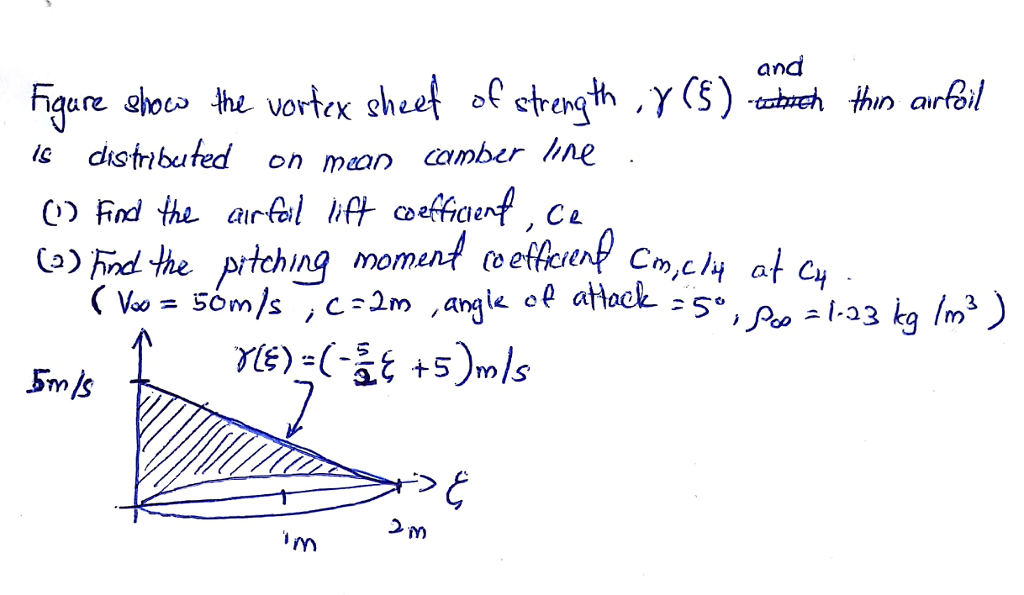 and
Figure shows the vortex sheet of strength , γ(ξ) which thin airfoil
is distributed on mean camber line .
(1) Find the airfoil lift coefficient , Cℓ
(2) Find the pitching moment coefficient Cm,c/4 at C/4 .
( V∞ = 50m/s , c = 2m , angle of attack = 5° , ρ∞ = 1.23 kg /m³ )
γ(ξ) = (-5/2 ξ + 5) m/s
5m/s
ξ
1m
2m